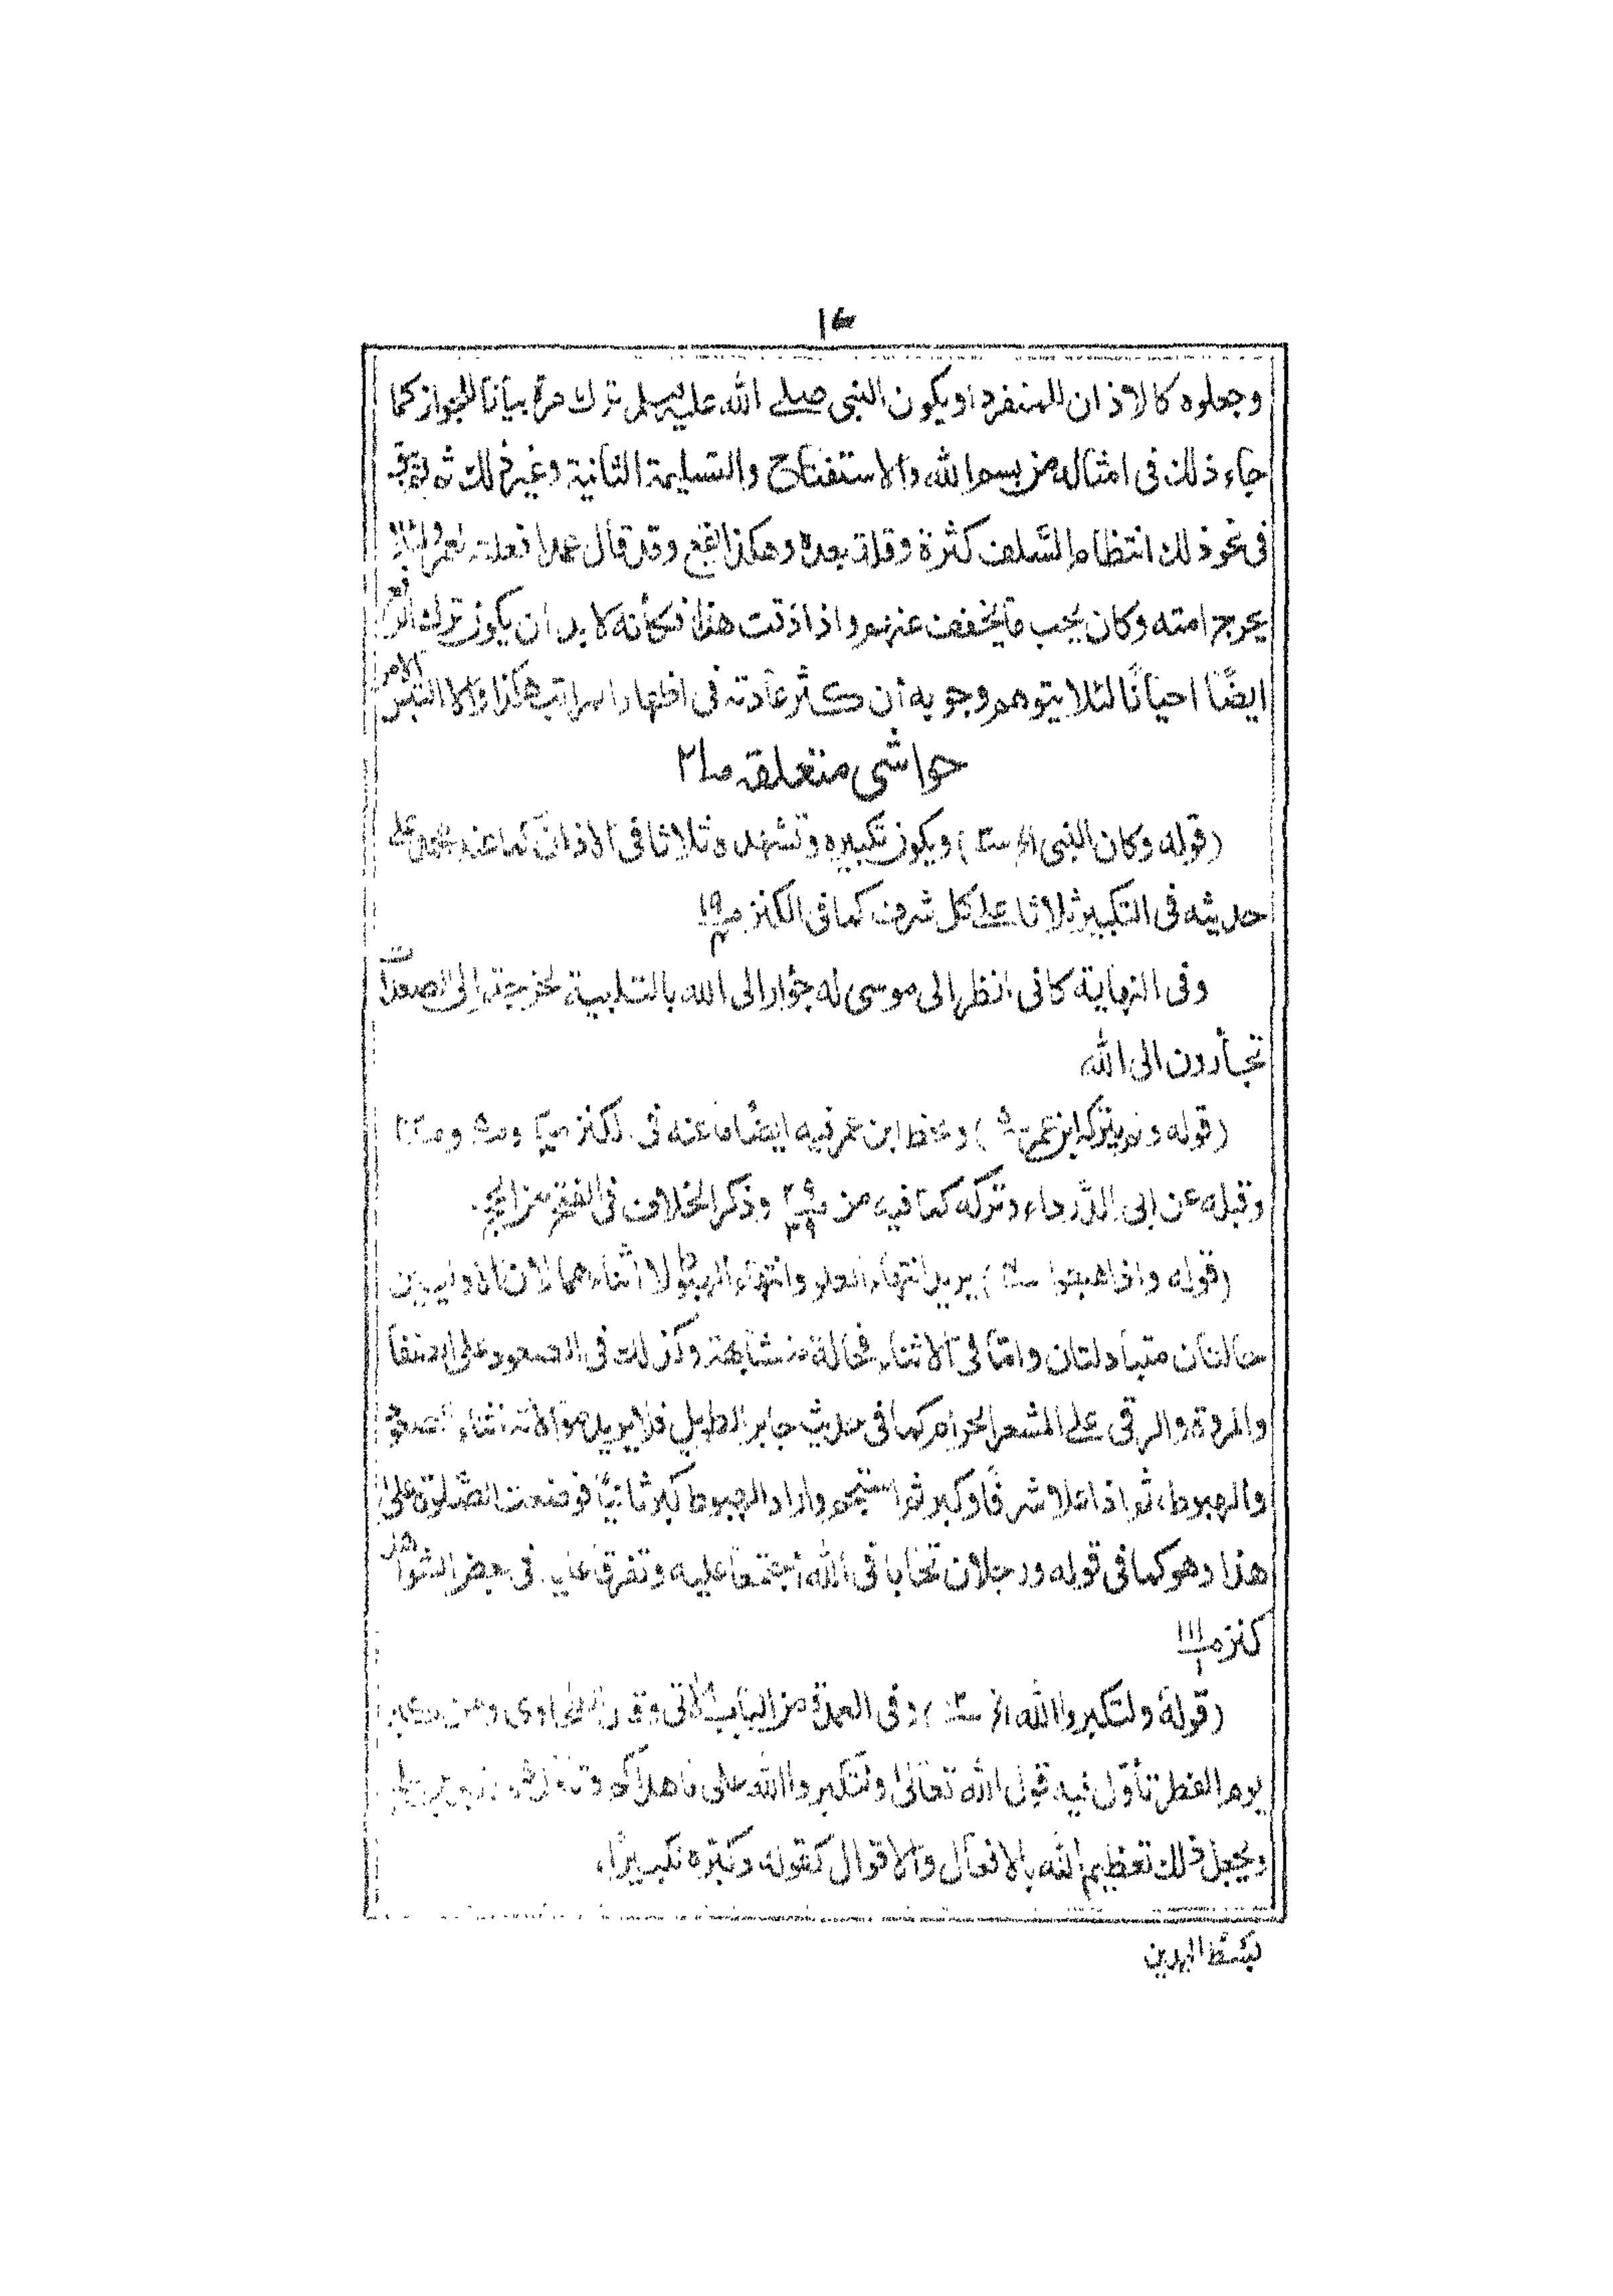 وجعلوه كالاذان للمنفرد او يكون النبى صلے الله عليه وسلم ترك مرة بيانا للجواز كما
جاء ذلك فى امثاله من بسم الله والاستفتاح والتسليمة الثانية وغير ذلك ثم يقع
فى نحو ذلك انتظام السلف كثرة وقلة بعده وهكذا يقع وقد قال عمدا فعلته يعمر لئلا
يحرج امته وكان يحب ما يخفف عنهم واذا ذقت هذا فكأنه لا بد ان يكون ترك
ايضًا احيانًا لئلا يتوهم وجوبه أن كثر عادته فى اظهار المراتب هكذا والا التبس الامر
حواشى متعلقه صـ٢
(قوله وكان النبى الخ) ويكون تكبيره وتشهده ثلاثا فى الاذان كما عند على
حديثه فى التكبير ثلاثا علے كل شرف كما فى الكنز
وفى النهاية كانى انظر الى موسى له جؤار الى الله بالتلبية لخرجتم الى الصعدات
تجأرون الى الله
(قوله ولم يتركه ابن عمر) ابن عمر فيه ايضًا ما عنه فى الكنز
وقبله عن ابى الدرداء وتركه كما فيه من وذكر الخلاف فى الفتح من الحج
(قوله واذا هبطوا) يريد انتهاء العلو وانتهاء الهبوط لا اثناءهما لان الاوليين
حالتان متبادلتان واما فى الاثناء فحالة متشابهة وكذلك فى الصعود على الصفا
والمروة والرقى علے المشعر الحرام كما فى حديث جابر الطويل فلا يريد موالاته اثناء الصعود
والهبوط، ثم اذا علا شرفًا وكبر ثم وارادا الهبوط كبر ثانيًا فوضعت الصلوة على
هذا وهو كما فى قوله ورجلان تحابا فى الله اجتمعا عليه وتفرقا عليه فى بعض الشواهد
كنز صـ ١١١/١
(قوله ولتكبروا الله الخ) وفى العمدة من الباب الآتى وقال الطحاوى ومن كبر
يوم الفطر تأول فيه قول الله تعالىٰ ولتكبروا الله على ما هداكم
ويجعل ذلك تعظيم الله بالافعال والاقوال كقوله وكبره تكبيرًا،
بسط اليدين